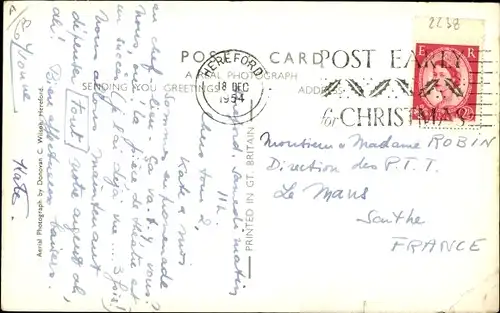 2238
POST CARD
A REAL PHOTOGRAPH
SENDING YOU GREETINGS
ADDRESS
HEREFORD
18 DEC
1954
POST EARLY
for CHRISTMAS
E R
Monsieur & Madame ROBIN
Direction des P.T.T.
Le Mans
Sarthe
FRANCE
PRINTED IN GT. BRITAIN
Aerial Photograph by Donovan C. Wilson, Hereford.
Samedi matin
11 h.
Chers tous 2,
Kate & moi
sommes en promenade
au chef-lieu. Ça va. & vous?
Nous avons la pièce de théâtre et
un succès. je l'ai déjà vue ... 3 fois!
Nous allons maintenant
dépenser tout notre argent ah,
ah! Bien affectueux baisers.
Yvonne
Kate.